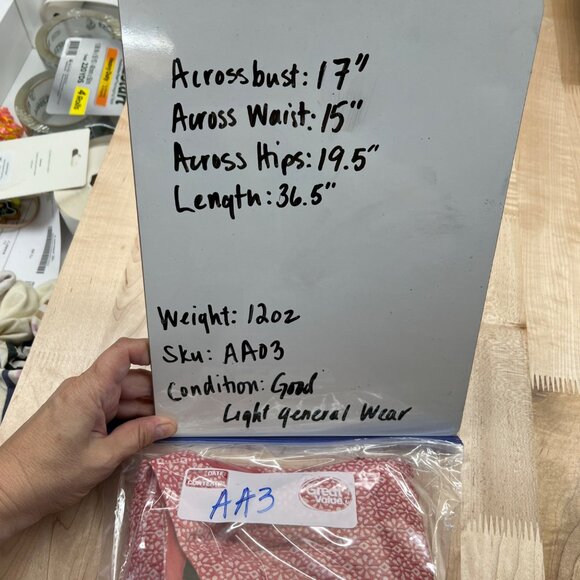 Across bust: 17"
Across Waist: 15"
Across Hips: 19.5"
Length: 36.5"
Weight: 12oz
Sku: AA03
Condition: Good
Light general Wear
DATE
CONTENTS
AA3
Great Value
4 Rolls